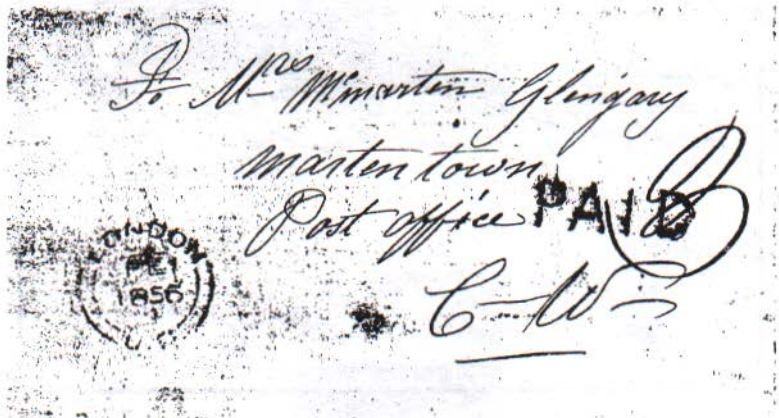 To Mrs Mcmartin Glengary
Martentown
Post office
PAID 3
C—W—
LONDON
FE 1
1856
U.C.